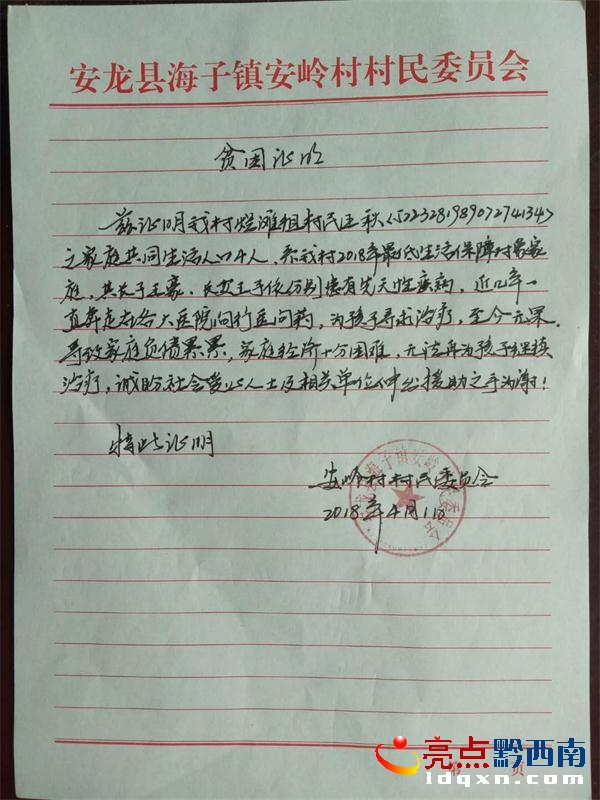 安龙县海子镇安岭村村民委员会
贫困证明
兹证明我村烂滩组村民王秋(522328198907274134)
之家庭共同生活人口4人，系我村2018年最低生活保障对象家
庭，其长子王豪、长女王子依分别患有先天性疾病，近几年一
直奔走于各大医院问诊医问药，为孩子寻求治疗，至今无果，
导致家庭负债累累，家庭经济十分困难，无法再为孩子继续
治疗，诚盼社会爱心人士及相关单位伸出援助之手为谢！
特此证明
安岭村村民委员会
2018年4月11日
安龙县海子镇安岭村村民委员会
第 页
亮点黔西南
ldqxn.com